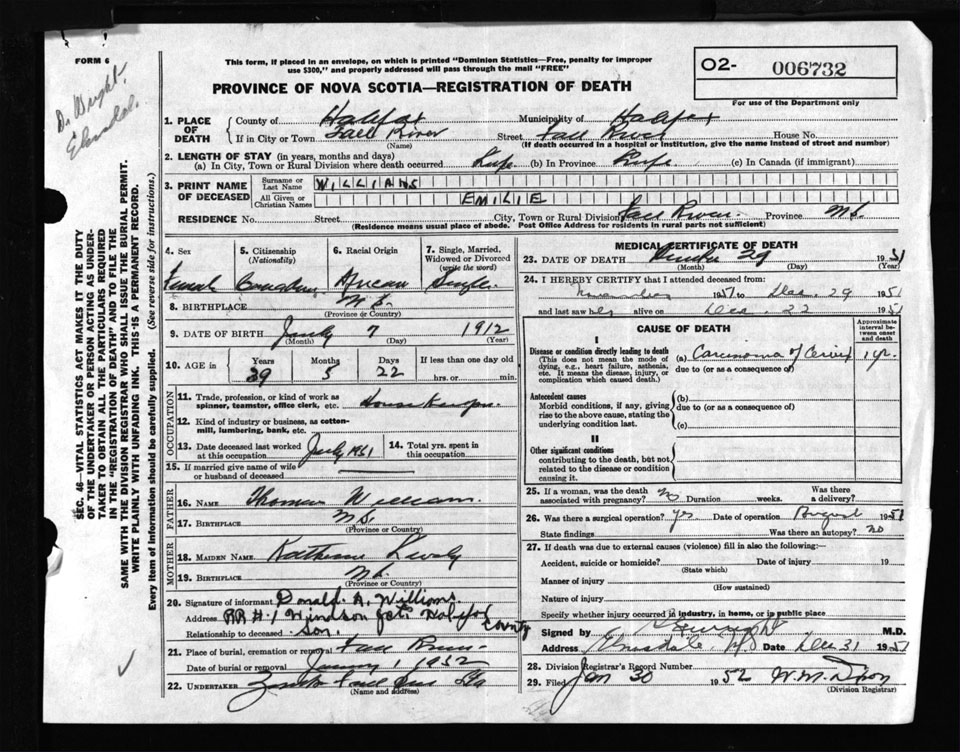 FORM 6
Dr. Wright.
This form, if placed in an envelope, on which is printed "Dominion Statistics—Free, penalty for improper
use $300," and properly addressed will pass through the mail "FREE"
PROVINCE OF NOVA SCOTIA—REGISTRATION OF DEATH
O2- 006732
For use of the Department only
1. PLACE OF DEATH
County of Halifax Municipality of Halifax
If in City or Town Fall River Street Fall River House No.
(Name) (If death occurred in a hospital or institution, give the name instead of street and number)
2. LENGTH OF STAY (in years, months and days)
(a) In City, Town or Rural Division where death occurred Life (b) In Province Life (c) In Canada (if immigrant)
3. PRINT NAME OF DECEASED
Surname or Last Name WILLIAMS
All Given or Christian Names EMILIE
RESIDENCE No. Street City, Town or Rural Division Fall River Province N.S.
(Residence means usual place of abode. Post Office Address for residents in rural parts not sufficient)
4. Sex
Female
5. Citizenship
(Nationality)
Canadian
6. Racial Origin
African
7. Single, Married, Widowed or Divorced
(write the word)
Single
8. BIRTHPLACE N.S.
(Province or Country)
9. DATE OF BIRTH July 7 1912
(Month) (Day) (Year)
10. AGE in Years Months Days If less than one day old
39 5 22 hrs. or min.
OCCUPATION
11. Trade, profession, or kind of work as
spinner, teamster, office clerk, etc.
12. Kind of industry or business, as cotton-
mill, lumbering, bank, etc.
13. Date deceased last worked
at this occupation July 1951
14. Total yrs. spent in
this occupation.
15. If married give name of wife
or husband of deceased
FATHER
16. NAME Thomas William.
17. BIRTHPLACE N.S.
(Province or Country)
MOTHER
18. MAIDEN NAME Katherine
19. BIRTHPLACE N.S.
(Province or Country)
20. Signature of informant Donald A. Williams
Address RR #1 Windsor Jct. Halifax County
Relationship to deceased Son.
21. Place of burial, cremation or removal Fall River
Date of burial or removal January 1 1952
22. UNDERTAKER
(Name and address)
MEDICAL CERTIFICATE OF DEATH
23. DATE OF DEATH 29 1951
(Month) (Day) (Year)
24. I HEREBY CERTIFY that I attended deceased from:
November 1951 to Dec. 29 1951
and last saw her alive on Dec. 22 1951
CAUSE OF DEATH
Approximate interval between onset and death
I
Disease or condition directly leading to death
(This does not mean the mode of
dying, e.g., heart failure, asthenia,
etc. It means the disease, injury, or
complication which caused death.)
(a) Carcinoma of Cervix 1 yr.
due to (or as a consequence of)
Antecedent causes
Morbid conditions, if any, giving
rise to the above cause, stating the
underlying condition last.
(b)
due to (or as a consequence of)
(c)
II
Other significant conditions
contributing to the death, but not
related to the disease or condition
causing it.
25. If a woman, was the death
associated with pregnancy? No Duration weeks. Was there
a delivery?
26. Was there a surgical operation? Yes Date of operation August 1951
State findings Was there an autopsy? No
27. If death was due to external causes (violence) fill in also the following—
Accident, suicide or homicide? Date of injury 19
(State which)
Manner of injury
(How sustained)
Nature of injury
Specify whether injury occurred in industry, in home, or in public place
Signed by M.D.
Elmsdale, N.S. Date Dec 31 1951
28. Division Registrar's Record Number
29. Filed Jan 30 1952
(Division Registrar)
SEC. 46—VITAL STATISTICS ACT MAKES IT THE DUTY
OF THE UNDERTAKER OR PERSON ACTING AS UNDER-
TAKER TO OBTAIN ALL THE PARTICULARS REQUIRED
IN THE "REGISTRATION OF DEATH" AND TO FILE THE
SAME WITH THE DIVISION REGISTRAR WHO SHALL ISSUE THE BURIAL PERMIT.
WRITE PLAINLY WITH UNFADING INK. THIS IS A PERMANENT RECORD.
Every item of information should be carefully supplied. (See reverse side for instructions.)